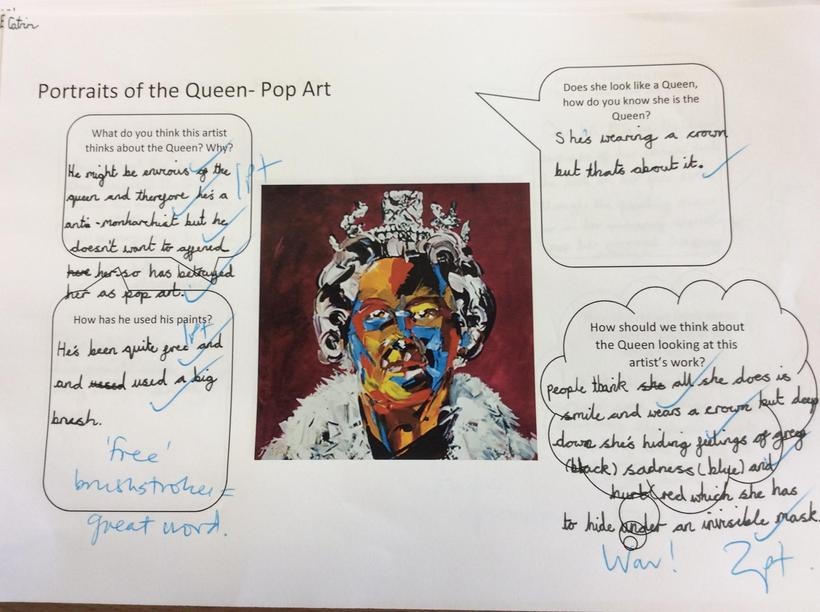 E Catrin
Portraits of the Queen- Pop Art
What do you think this artist
thinks about the Queen? Why?
He might be envious of the
queen and therefore he's a
anti-monharchist but he
doesn't want to affened
her so has betrayed
her as pop art.
1pt
How has he used his paints?
He's been quite free and
and used a big
brush.
1pt
'free'
brushstrokes =
great word.
Does she look like a Queen,
how do you know she is the
Queen?
She's wearing a crown
but thats about it.
How should we think about
the Queen looking at this
artist's work?
people think all she does is
smile and wears a crown but deep
down she's hiding feelings of
(black) sadness (blue) and
red which she has
to hide under an invisible mask.
Wow! 2pt.